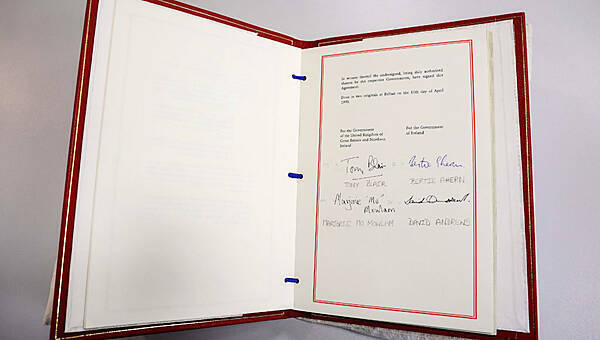 In witness thereof the undersigned, being duly authorised
thereto by the respective Governments, have signed this
Agreement.
Done in two originals at Belfast on the 10th day of April
1998.
For the Government
of the United Kingdom of
Great Britain and Northern
Ireland
For the Government
of Ireland
Tony Blair
Bertie Ahern
TONY BLAIR
BERTIE AHERN
Marjorie "Mo"
Mowlam
MARJORIE MO MOWLAM
DAVID ANDREWS